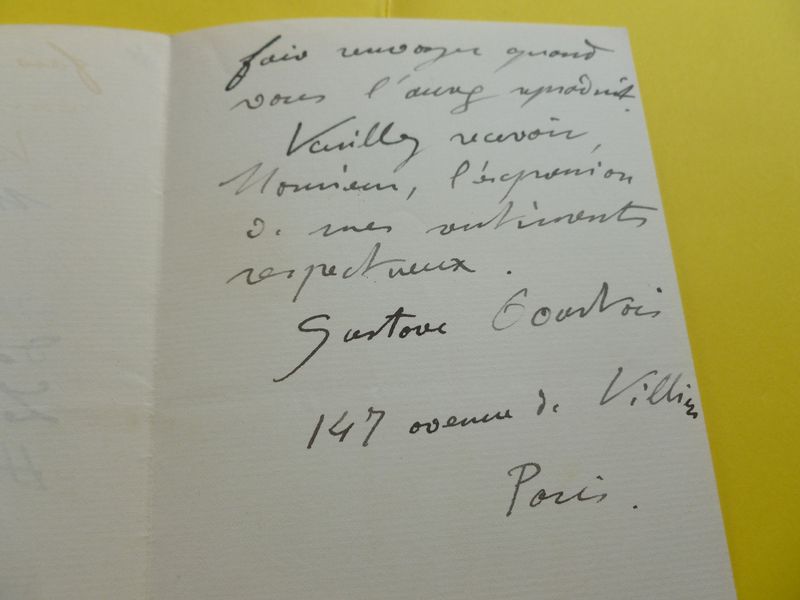 faire renvoyer quand
vous l'aurez reproduit.
Veuillez recevoir,
Monsieur, l'expression
de mes sentiments
respectueux.
Gustave Courtois
147 avenue de Villiers
Paris.